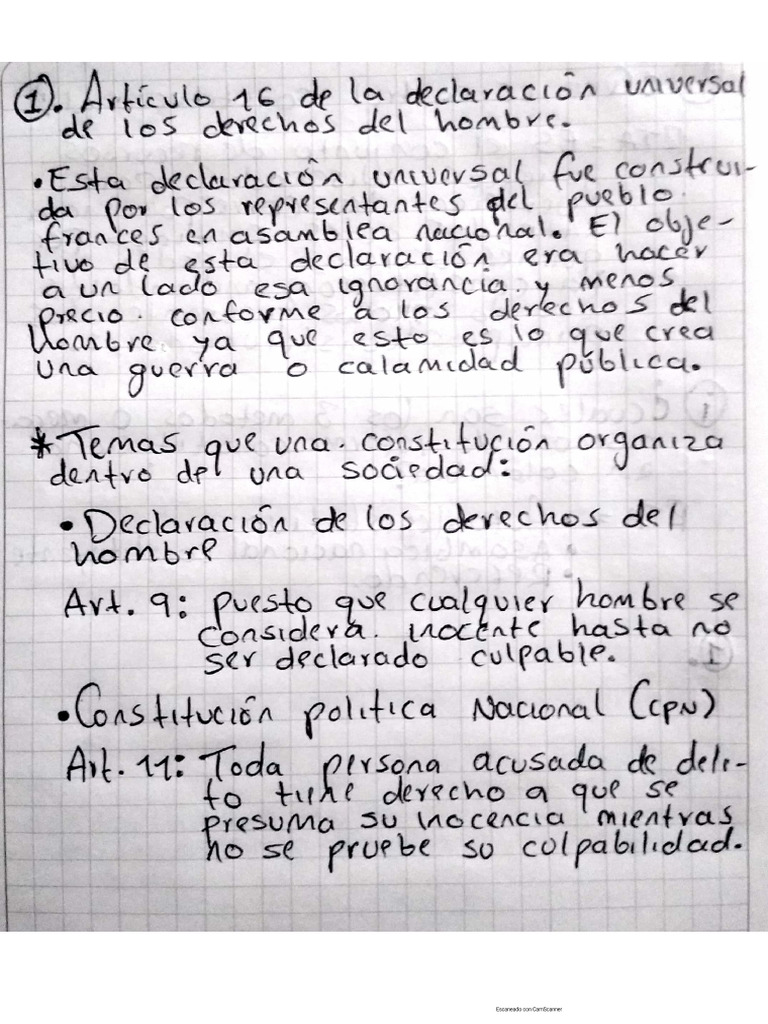 ①. Artículo 16 de la declaración universal
de los derechos del hombre.
• Esta declaración universal fue construi-
da por los representantes del pueblo
frances en asamblea nacional. El obje-
tivo de esta declaración era hacer
a un lado esa ignorancia y menos
precio conforme a los derechos del
hombre ya que esto es lo que crea
una guerra o calamidad pública.
* Temas que una constitución organiza
dentro de una sociedad:
• Declaración de los derechos del
hombre
Art. 9: puesto que cualquier hombre se
considera inocente hasta no
ser declarado culpable.
• Constitución politica Nacional (CPN)
Art. 11: Toda persona acusada de deli-
to tiene derecho a que se
presuma su inocencia mientras
no se pruebe su culpabilidad.
Escaneado con CamScanner